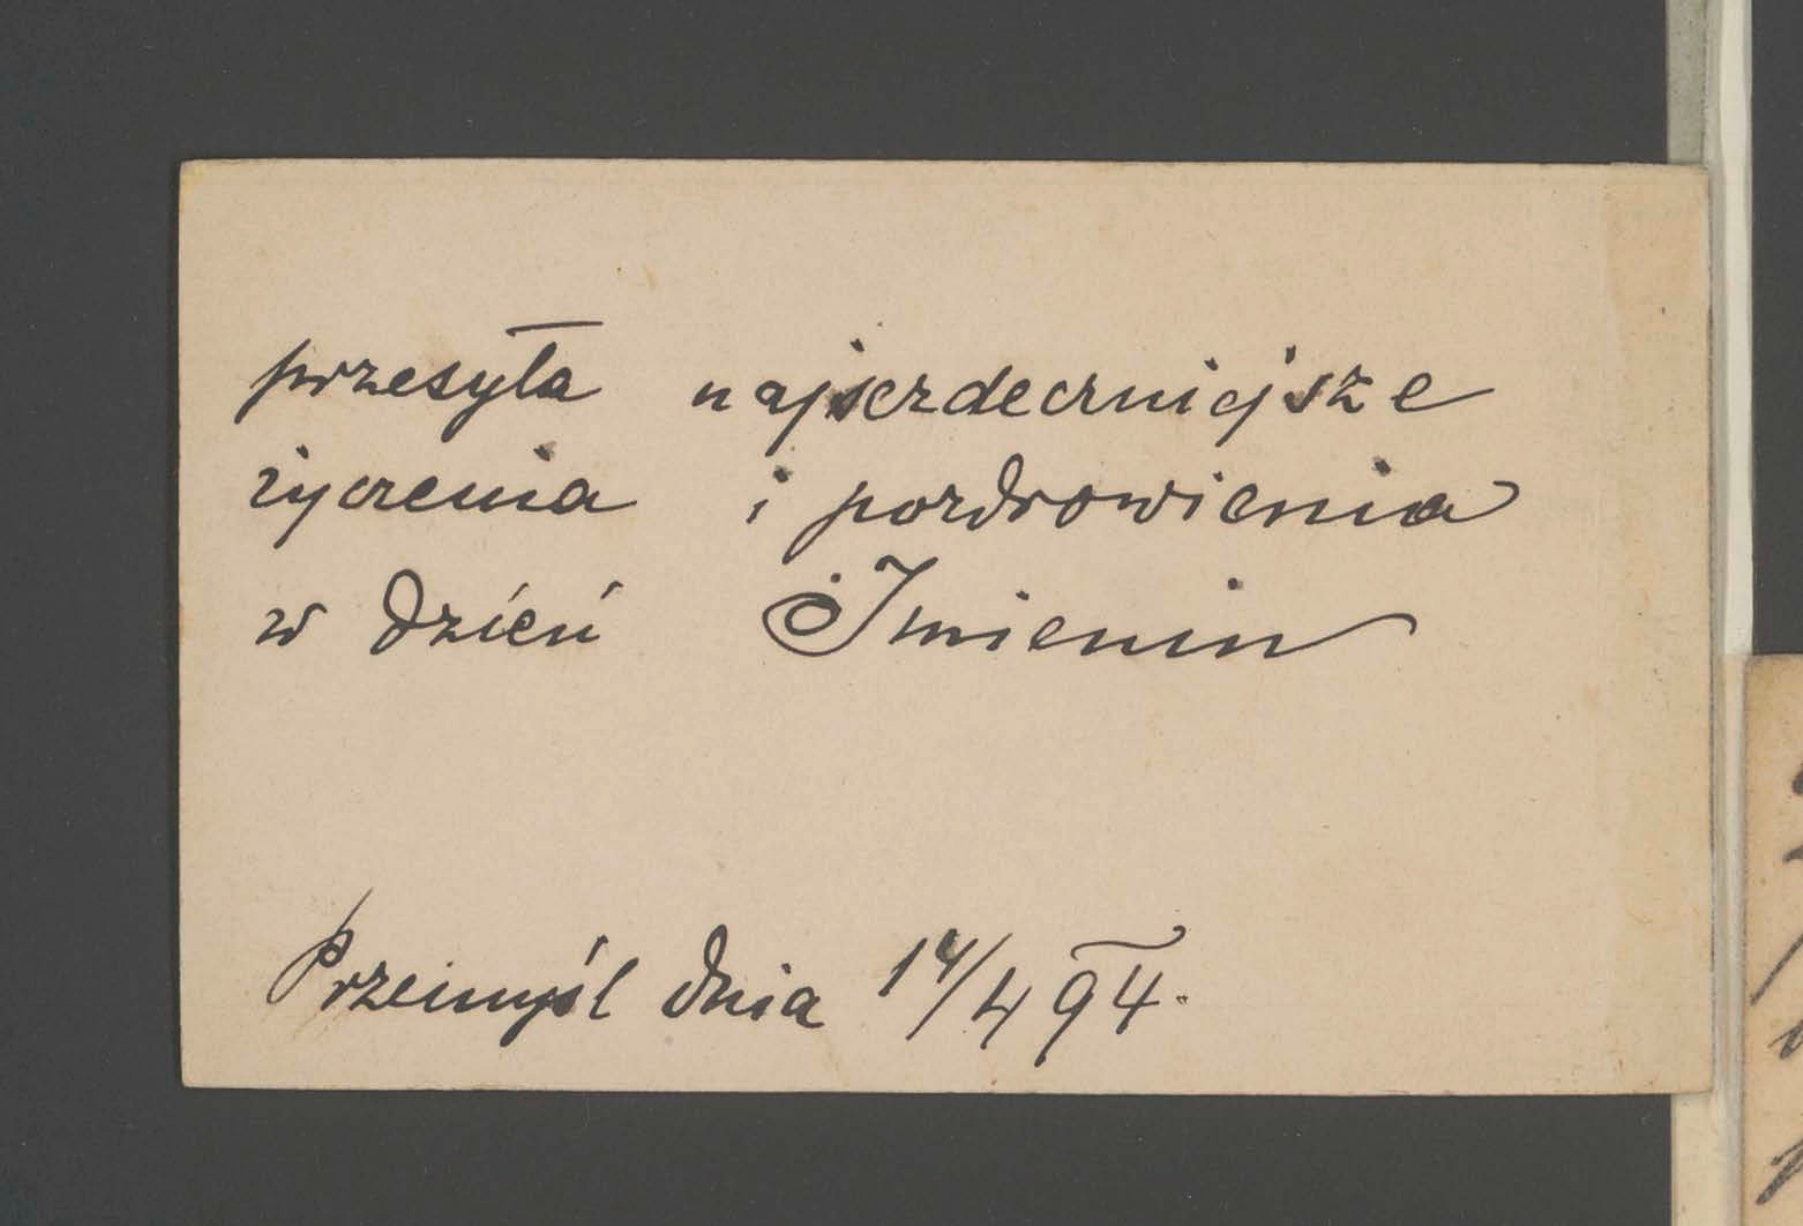 przesyła najserdeczniejsze
życzenia i pozdrowienia
w dzień Imienin
Przemyśl dnia 14/4 94.